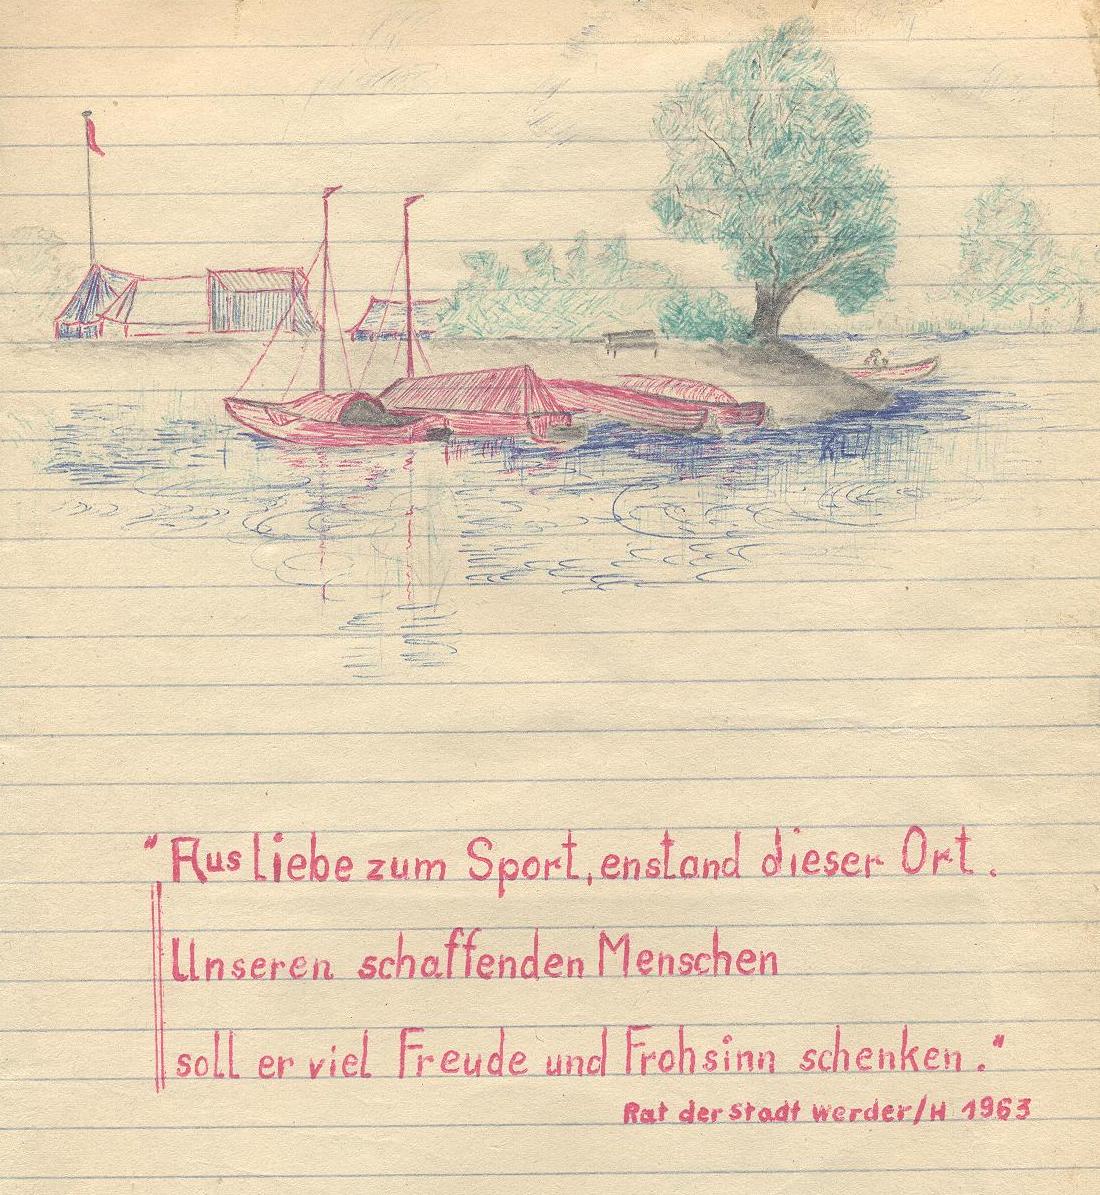 "Aus liebe zum Sport, enstand dieser Ort.
Unseren schaffenden Menschen
soll er viel Freude und Frohsinn schenken."
Rat der Stadt Werder/H 1963